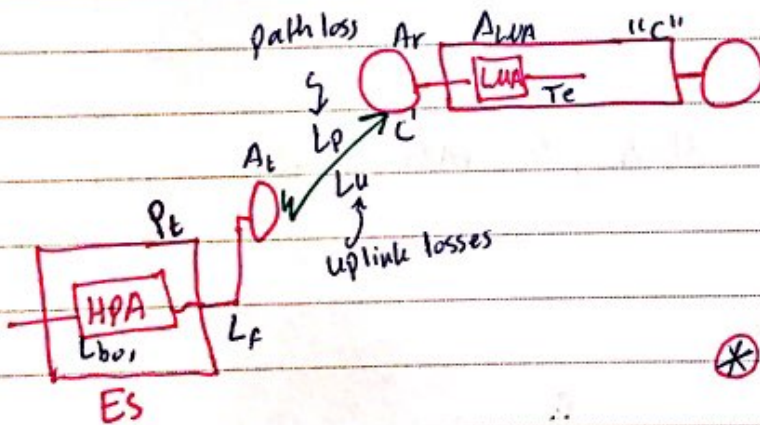 path loss Ar ALNA "C"
LNA
Te
Lp C'
At
Lu
Pt
uplink losses
HPA
Lbo1
Lf
Es
*
∴